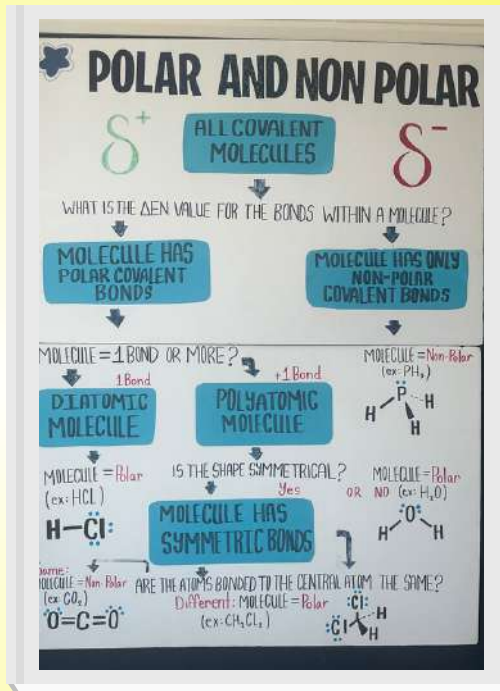 POLAR AND NON POLAR
δ+
ALL COVALENT
MOLECULES
δ-
WHAT IS THE ΔEN VALUE FOR THE BONDS WITHIN A MOLECULE?
MOLECULE HAS
POLAR COVALENT
BONDS
MOLECULE HAS ONLY
NON-POLAR
COVALENT BONDS
MOLECULE = 1 BOND OR MORE?
1 Bond
+1 Bond
MOLECULE = Non-Polar
(ex: PH₃)
P
H H
H
DIATOMIC
MOLECULE
POLYATOMIC
MOLECULE
MOLECULE = Polar
(ex: HCL)
H-Cl
IS THE SHAPE SYMMETRICAL?
Yes
OR NO
MOLECULE = Polar
(ex: H₂O)
O
H H
MOLECULE HAS
SYMMETRIC BONDS
Same:
MOLECULE = Non-Polar
(ex: CO₂)
O=C=O
ARE THE ATOMS BONDED TO THE CENTRAL ATOM THE SAME?
Different: MOLECULE = Polar
(ex: CH₂CL₂)
Cl
Cl H
H